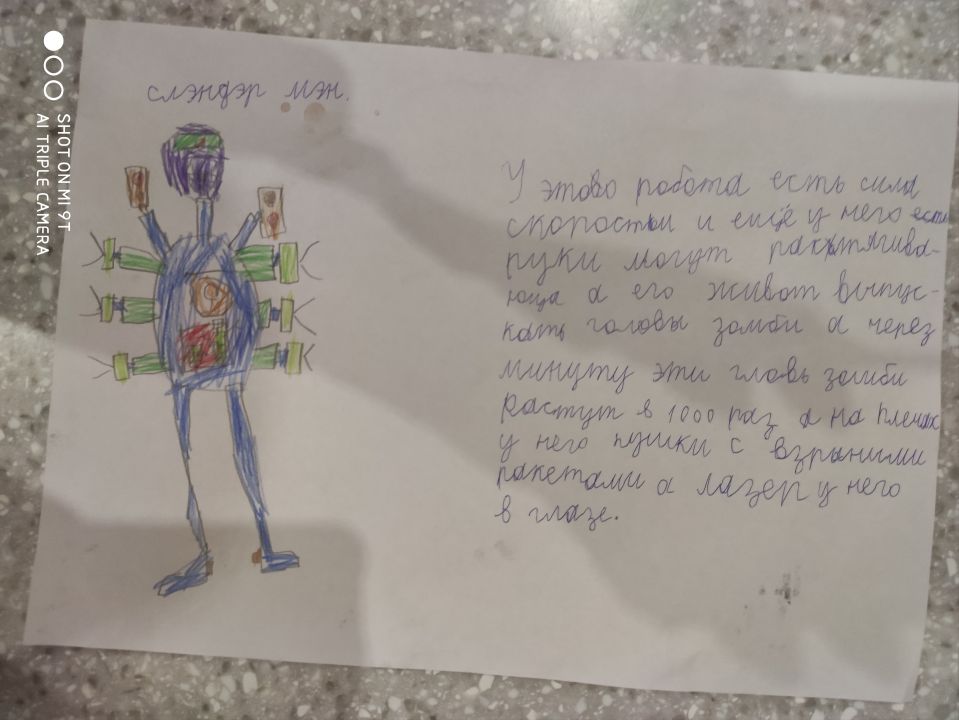 слэндэр мэн.
У этово робота есть сила
скоростьи и ещё у него есть
руки могут растягива-
юца а его живот выпус-
кать головы зомби а через
минуту эти гловы зомби
растут в 1000 раз а на плечах
у него пушки с взрыными
ракетами а лазер у него
в глазе.
SHOT ON MI 9T
AI TRIPLE CAMERA